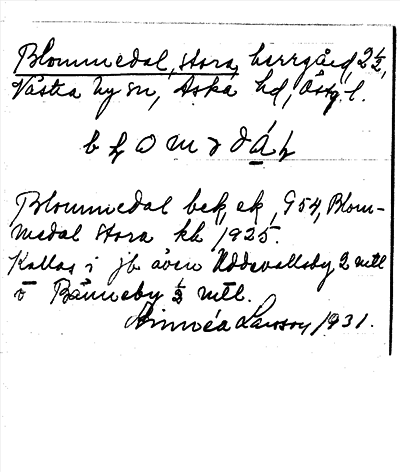 Blommedal, stora, herrgård, 2½,
Västra Ny sn, Aska hd, Östg.l.
Blommedal bek, ek, 954, Blom-
medal stora kk 1925.
Kallas i jb även Uddevallsby 2 mtl
o Bänneby ½ mtl.
Linnéa Larsson 1931.